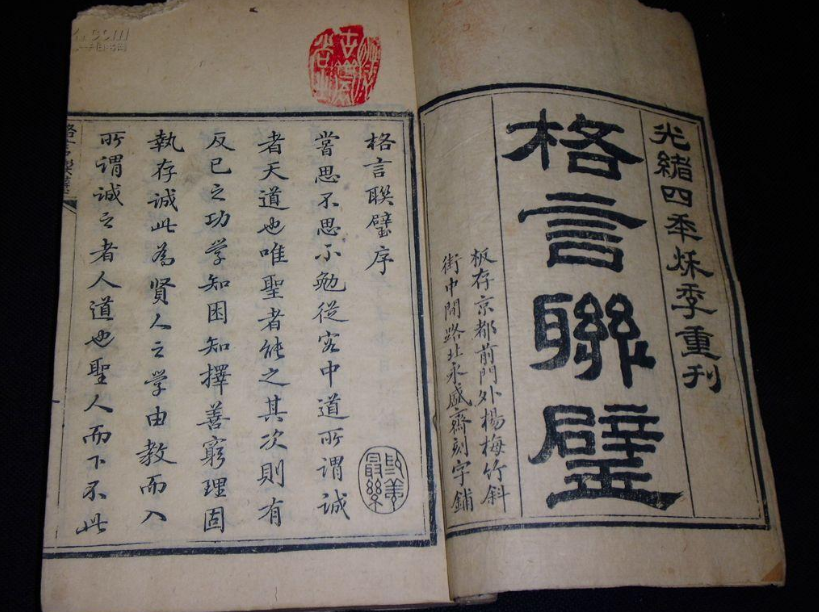 光緒四年秌季重刊
格言聯璧
板存京都前門外楊梅竹斜
街中間路北永盛齋刻字鋪
格言聯璧序
嘗思不思不勉從容中道所謂誠
者天道也唯聖者能之其次則有
反己之功学知困知擇善窮理固
執存誠此為賢人之学由教而入
所謂誠之者人道也聖人而下不此